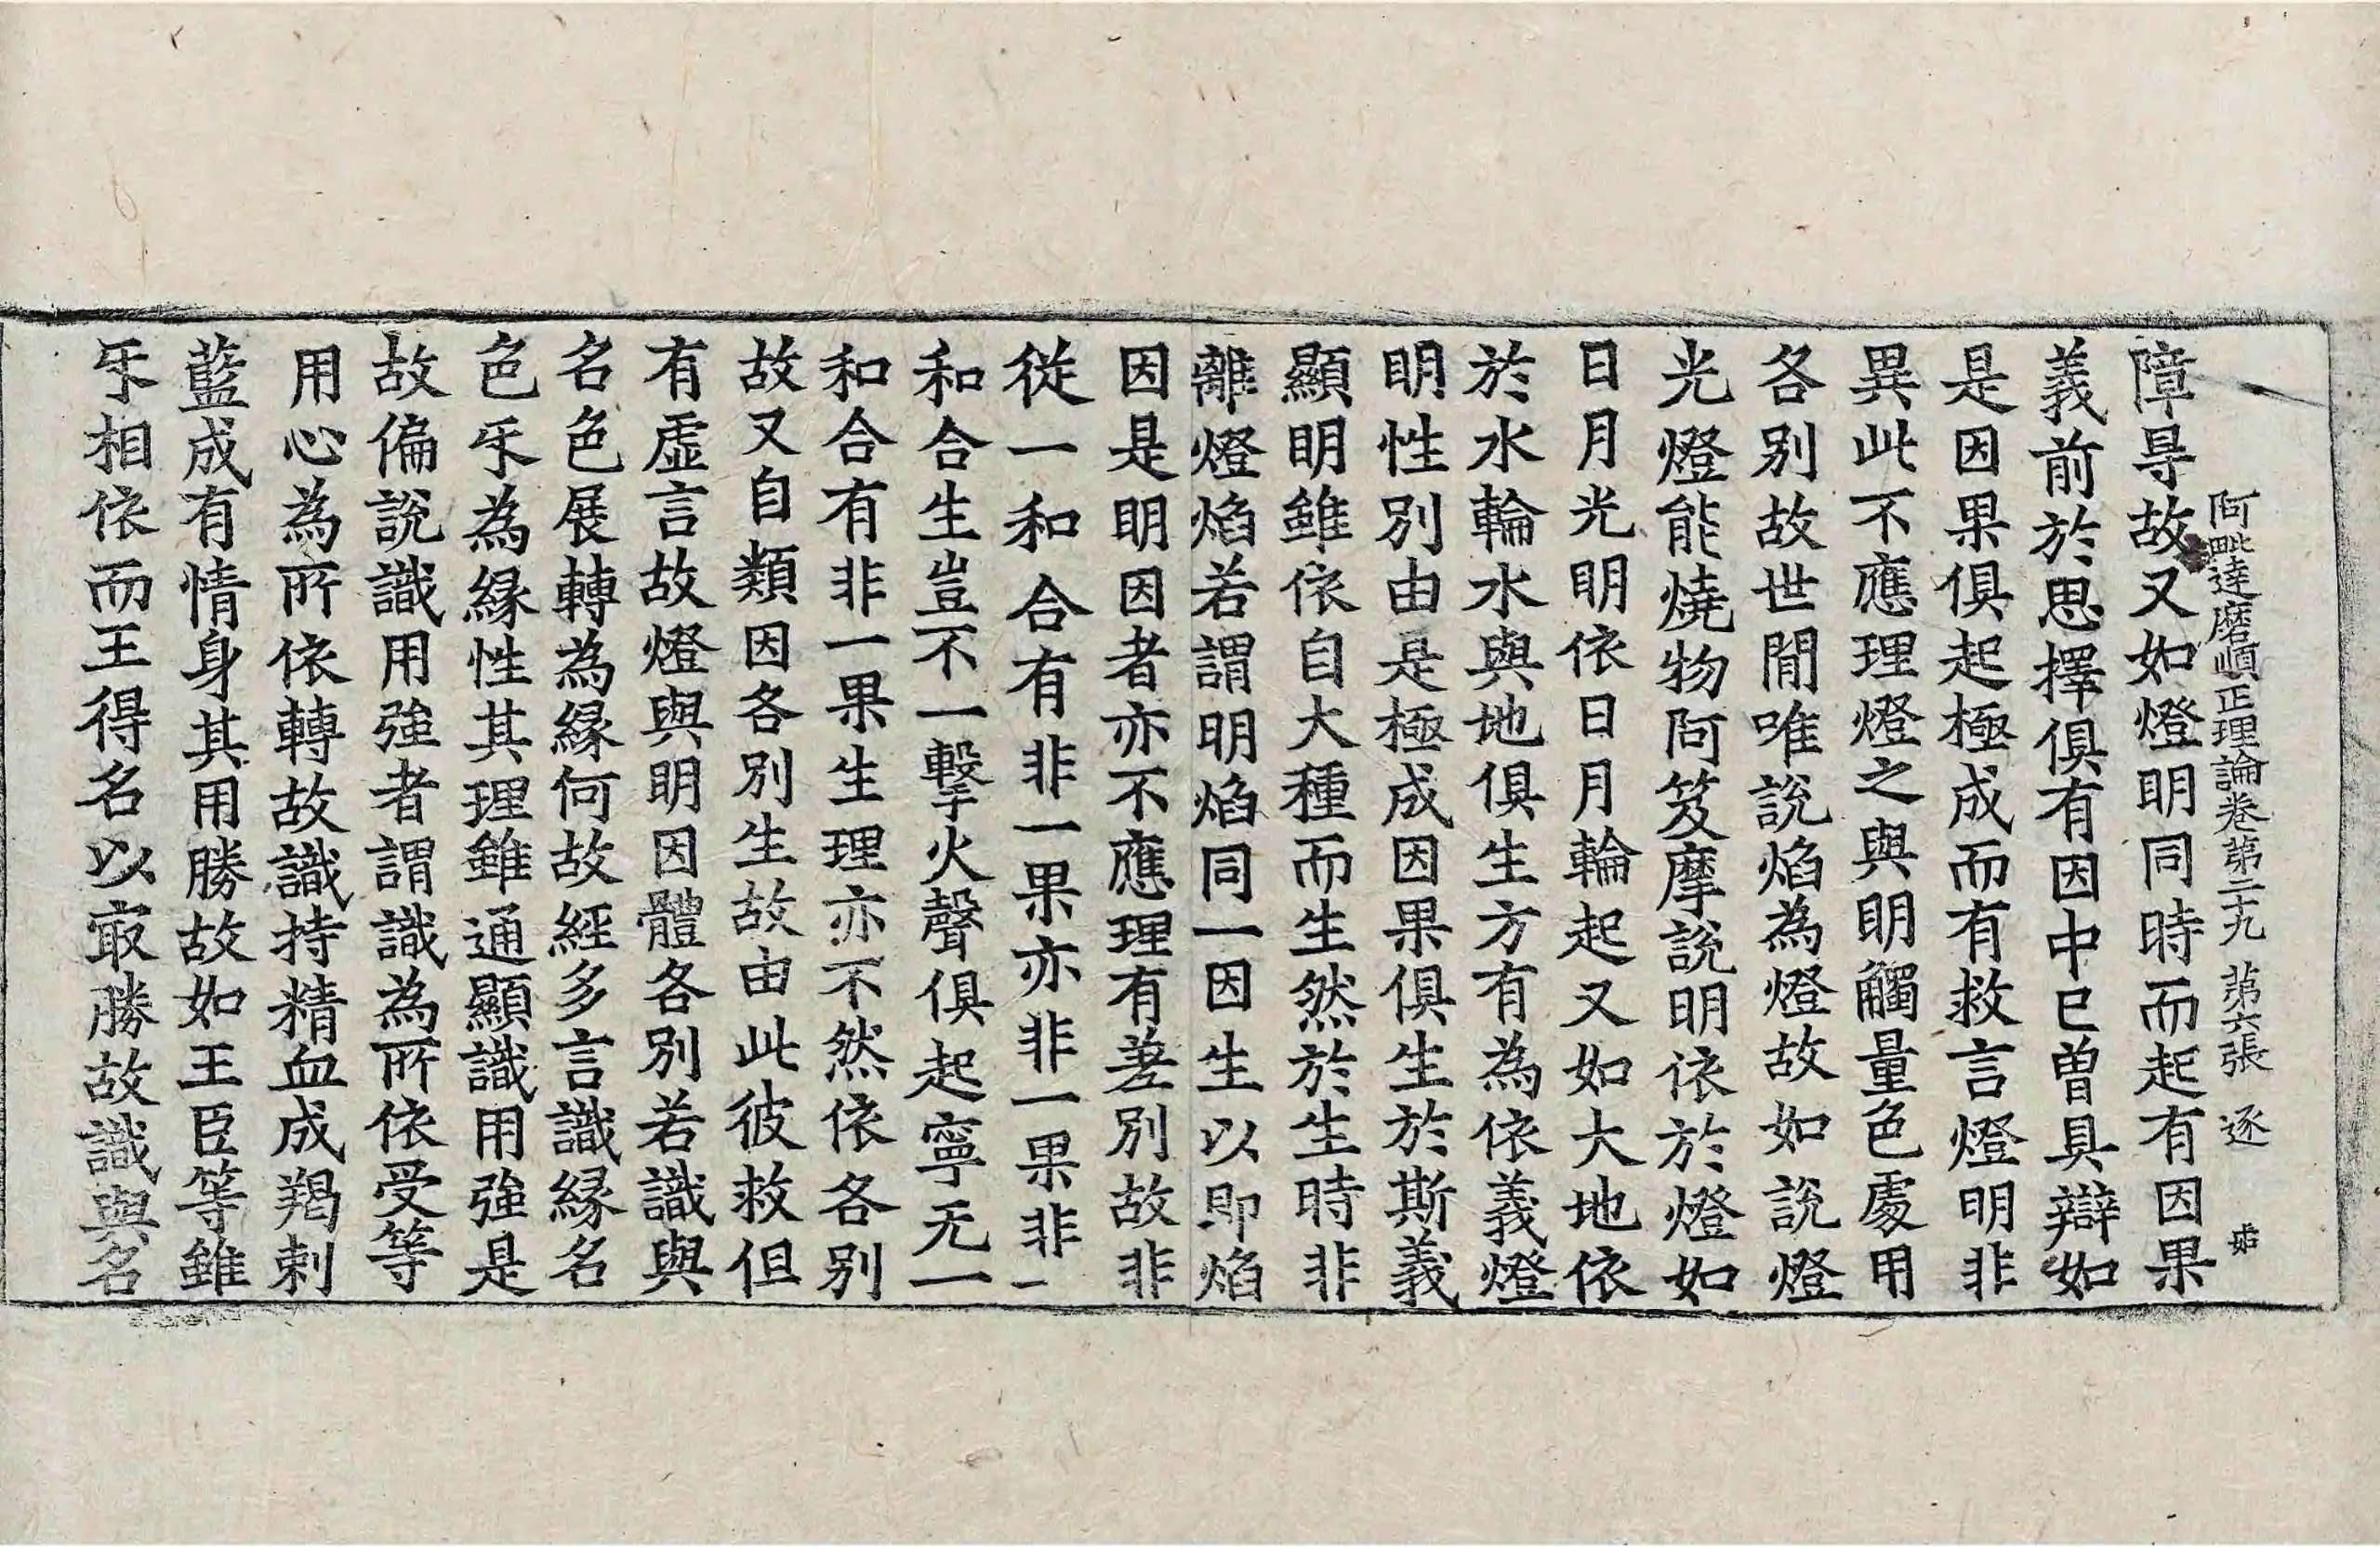 阿毗達磨順正理論卷第二十九 第六張 逐
障㝵故又如燈明同時而起有因果
義前於思擇俱有因中已曽具辯如
是因果俱起極成而有救言燈明非
異此不應理燈之與明觸量色處用
各别故世閒唯說焰為燈故如說燈
光燈能燒物阿笈摩說明依於燈如
日月光明依日月輪起又如大地依
於水輪水與地俱生方有為依義燈
明性别由是極成因果俱生於斯義
顯明雖依自大種而生然於生時非
離燈焰若謂明焰同一因生以即焰
因是明因者亦不應理有差别故非
從一和合有非一果亦非一果非一
和合生豈不一擊火聲俱起寧无一
和合有非一果生理亦不然依各别
故又自類因各别生故由此彼救但
有虛言故燈與明因體各别若識與
名色展轉為緣何故經多言識緣名
色㸦為緣性其理雖通顯識用強是
故偏說識用強者謂識為所依受等
用心為所依轉故識持精血成羯剌
藍成有情身其用勝故如王臣等雖
㸦相依而王得名以㝡勝故識與名